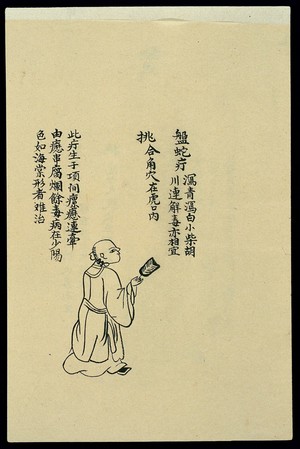 盤蛇疔
瀉青瀉白小柴胡
川連解毒亦相宜
挑合角穴在虎口内
此疔生于項间瘰癧連牽
由癧串屬爛餘毒病在少陽
色如海棠形者难治